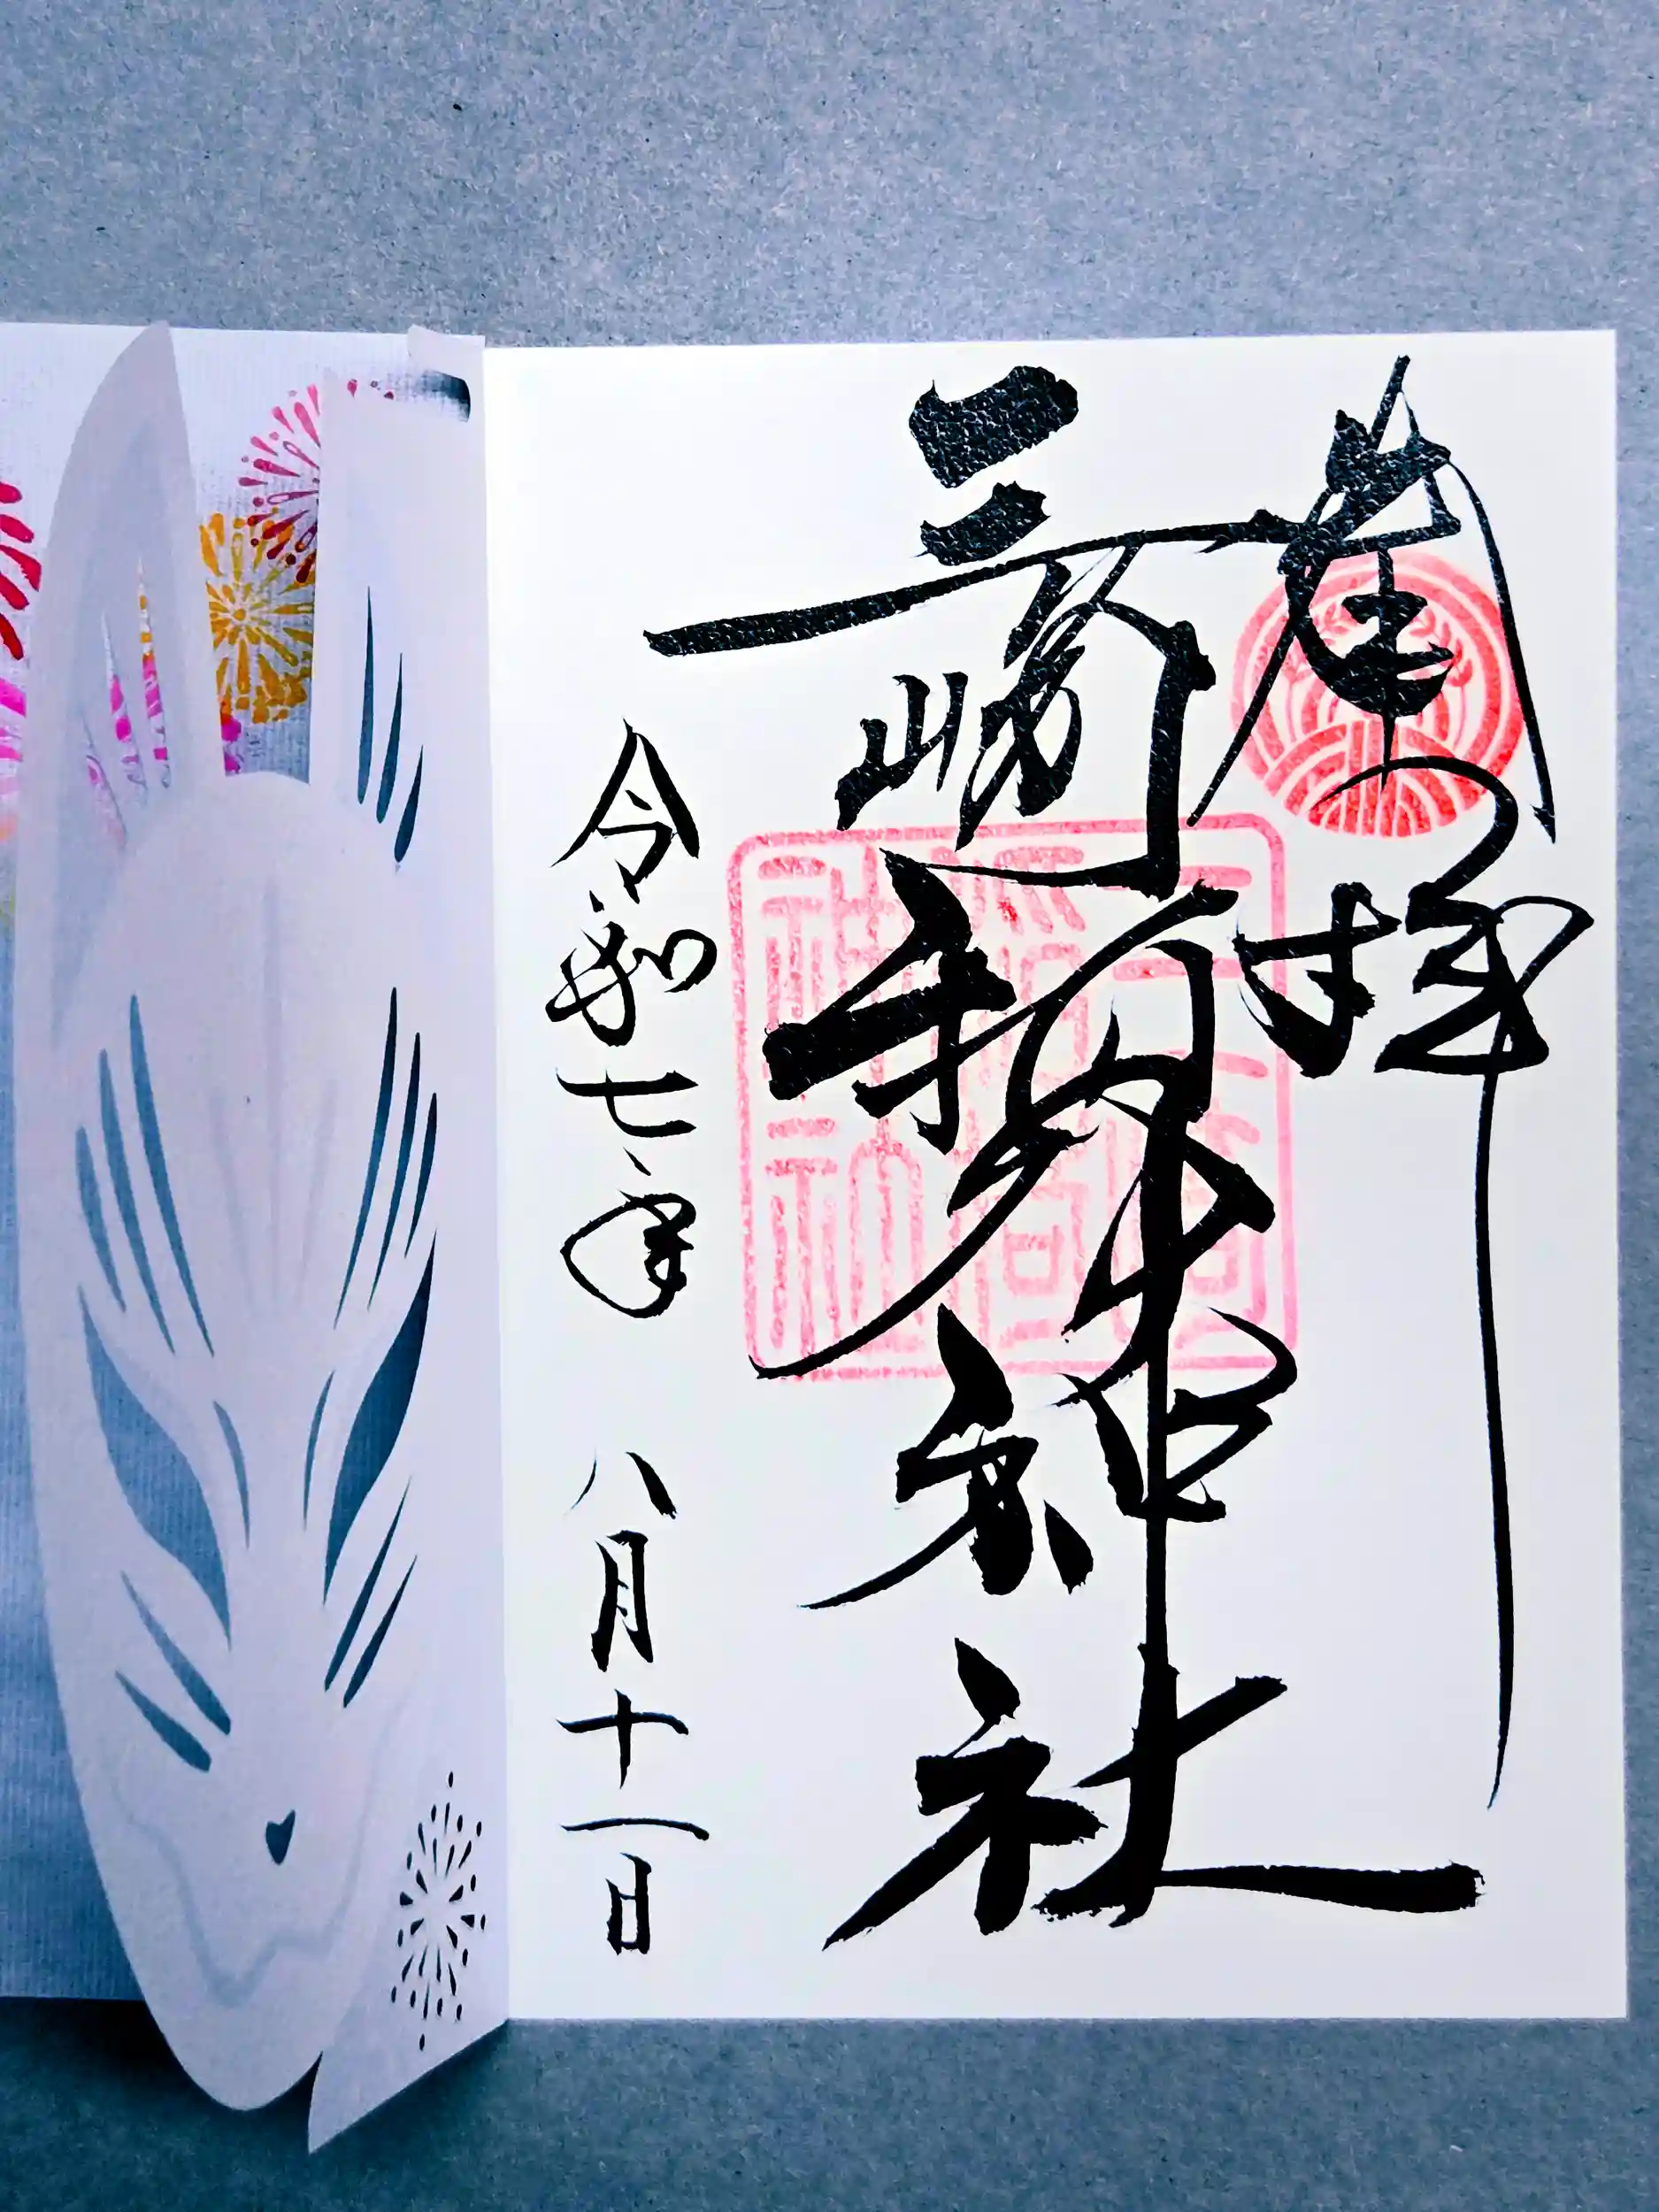 奉拝
三崎稲荷神社
令和七年 八月十一日